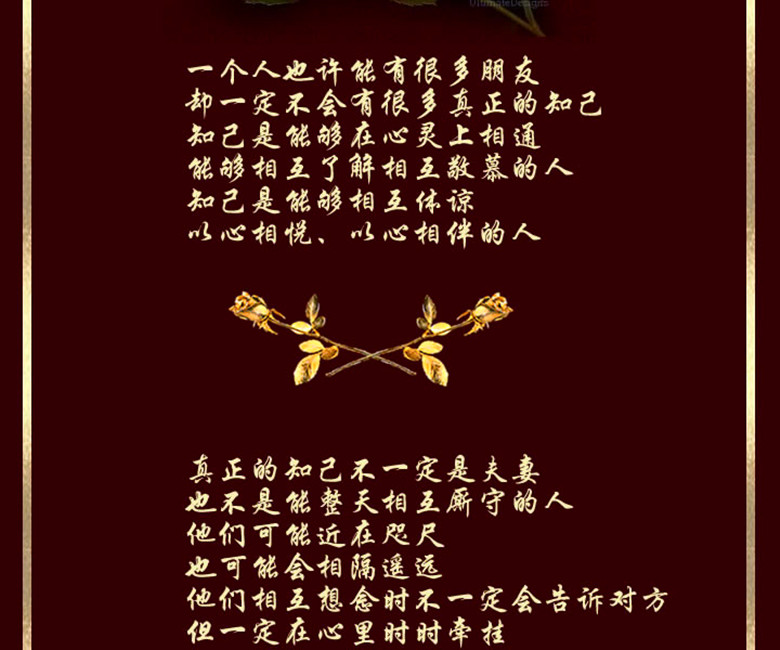 UltimateDesigns
一个人也许能有很多朋友
却一定不会有很多真正的知己
知己是能够在心灵上相通
能够相互了解相互敬慕的人
知己是能够相互体谅
以心相悦、以心相伴的人
真正的知己不一定是夫妻
也不是能整天相互厮守的人
他们可能近在咫尺
也可能会相隔遥远
他们相互想念时不一定会告诉对方
但一定在心里时时牵挂